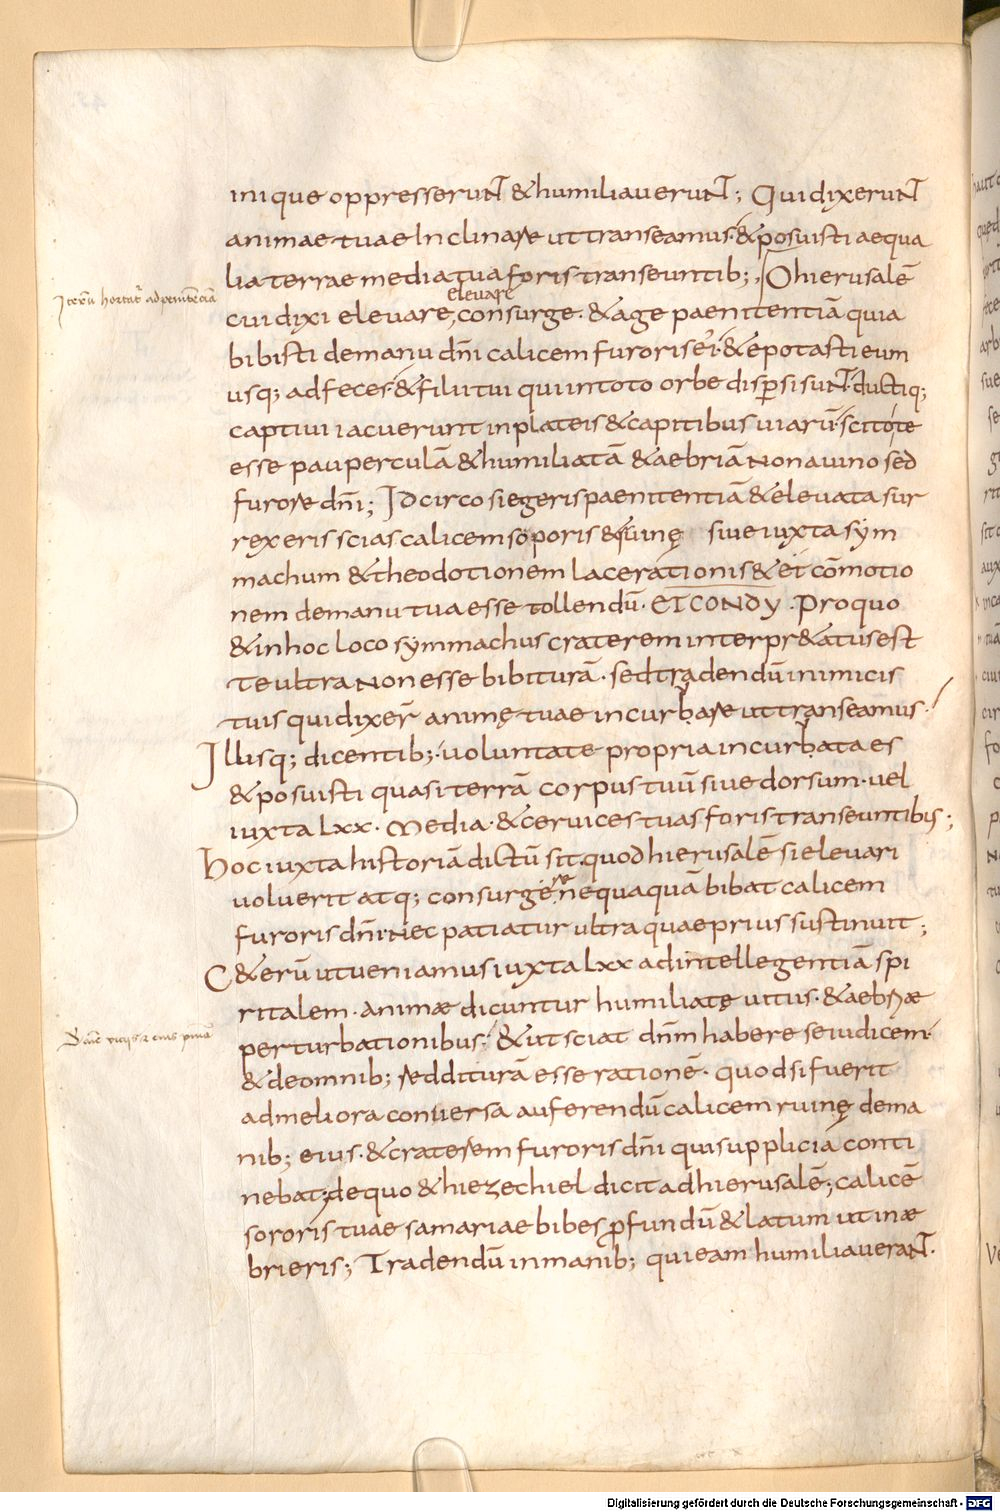 inique oppresserunt & humiliauerunt; Qui dixerunt
animae tuae Inclinare ut transeamus · & posuisti aequa
lia terrae media tua foris transeuntib; O hierusalē
Iterū hortat̄ ad penitēciā
elevare
cui dixi elevare, consurge · & age paenitentiā quia
bibisti demanu dn̄i calicem furoris ei · & epotasti eum
usq; ad feces · & filii tui qui in toto orbe dispersi sunt · ductiq;
captiui iacuerunt in plateis & capitibus uiarū · scitote
esse pauperculā & humiliatā & aebriā non a uino sed
furore dn̄i; Idcirco si egeris paenitentiā & elevata sur
rexeris scias calicem soporis & ruinę siue iuxta sym
machum & theodotionem lacerationis & cōmotio
nem de manu tua esse tollendū · ET CONDY · Pro quo
& in hoc loco symmachus craterem interpr&atus est
te ultra non esse bibiturā · sed tradendū inimicis
tuis qui dixer̄ animę tuae incurbare ut transeamus ·
Illisq; dicentib; uoluntate propria incurbata es
& posuisti quasi terrā corpus tuū siue dorsum · uel
iuxta lxx · media · & cervices tuas foris transeuntibus;
hoc iuxta historiā dictū sit · quod hierusalē si elevari
uoluerit atq; consurgere nequaquā bibat calicem
furoris dn̄i nec patiatur ultra quae prius sustinuit;
C&erū ut ueniamus iuxta lxx ad intellegentiā spi
ritalem · animæ dicuntur humiliatę uitiis · & aebriæ
perturbationibus · & ut sciat dn̄m habere se iudicem ·
& de omnib; redditurā esse rationē · quod si fuerit
ad meliora conuersa auferendū calicem ruinę de ma
nib; eius · & craterem furoris dn̄i qui supplicia conti
nebat; de quo & hiezechiel dicit ad hierusalē; calicē
sororis tuae samariae bibes profundū & latum ut inæ
brieris; Tradendū in manib; qui eam humiliauerant ·
Digitalisierung gefördert durch die Deutsche Forschungsgemeinschaft - DFG